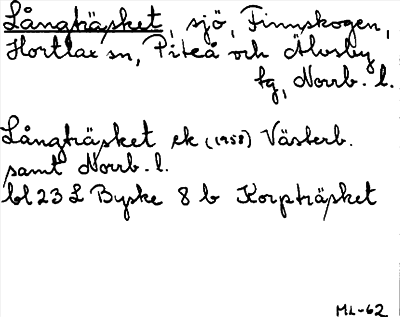 Långträsket, sjö, Finnskogen,
Hortlax sn, Piteå och Älvsby
tg, Norrb. l.
Långträsket ek (1958) Västerb.
samt Norrb. l.
bl 23 L Byske 8 b Korpträsket
ML-62